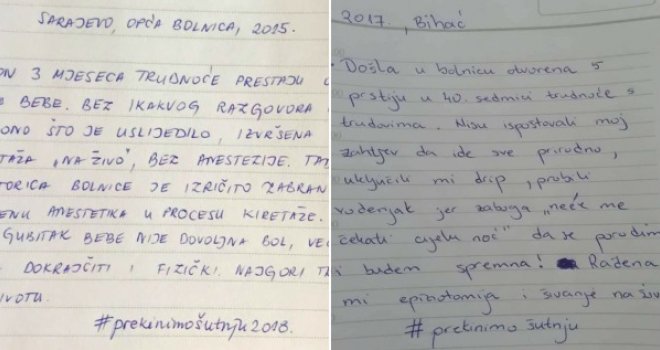 SARAJEVO, OPĆA BOLNICA, 2015.
ON 3 MJESECA TRUDNOĆE PRESTAJU
BEBE. BEZ IKAKVOG RAZGOVORA
ONO ŠTO JE USLIJEDILO, IZVRŠENA
TAŽA „NA ŽIVO", BEZ ANESTEZIJE.
TORICA BOLNICE JE IZRIČITO ZABRAN
ENU ANESTETIKA U PROCESU KIRETAŽE.
GUBITAK BEBE NIJE DOVOLJNA BOL, VEĆ
DOKRAJČITI I FIZIČKI. NAJGORI
IVOTU.
#prekinimošutnju2018.
2017., Bihać
Došla u bolnicu otvorena 5
prstiju u 40. sedmici trudnoće s
trudovima. Nisu ispoštovali moj
zahtjev da ide sve prirodno,
uključili mi drip, probili
vodenjak jer zaboga „neće me
čekati cijelu noć" da se porodim
i budem spremna! Rađena
mi epiziotomija i šivanje na živo
# prekinimo šutnju